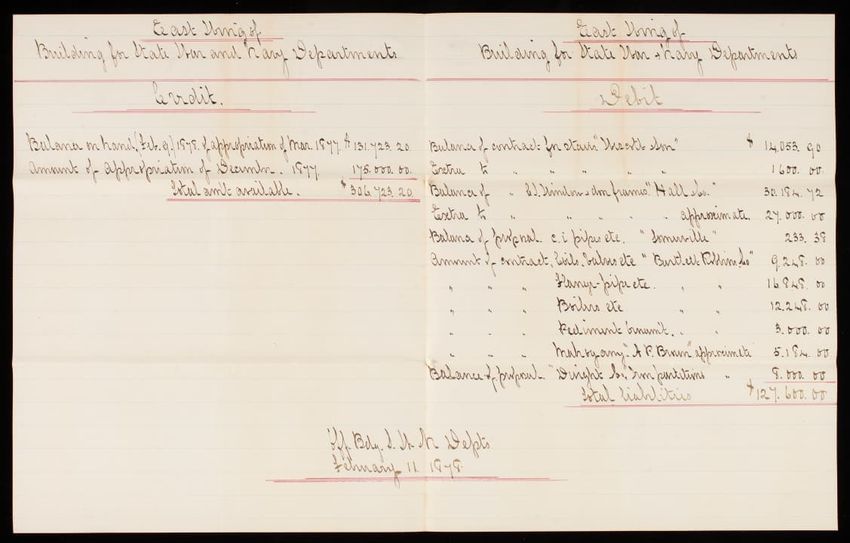 East Wing of
Building for State War and Navy Departments
Credit.
Balance on hand, (Feb. 9.) 1878. of appropriation of Mar. 1877. $ 131.723. 20
Amount of Appropriation of December. 1877. 175.000. 00
Total amt. available. $ 306.723. 20
East Wing of
Building for State War & Navy Departments
Debit
Balance of contract for stairs " & Son" $ 14,053. 90
Extra to " " " " " 1600. 00
Balance of " & frames" Hall & Co." 30.184. 72
Extra to " " " " " approximate. 27.000. 00
Balance of proposal. c. i pipes etc. " Somerville " 233. 38
Amount of contract, Coils. Valves etc " Bartlett Robbins & Co" 9.248. 00
" " " Flange-pipe etc. " " 16.848. 00
" " " Boilers etc " " 12.248. 00
" " " Pediment Ornamt. " " 3.000. 00
" " " Mahogany." A. P. Brown" approximate 5.184. 00
Balance of proposal. "Dwight Co," Iron partitions " 8.000 00
Total liabilities $127.600.00
Off. Bdg. S. W. N. Depts
February 11. 1878.